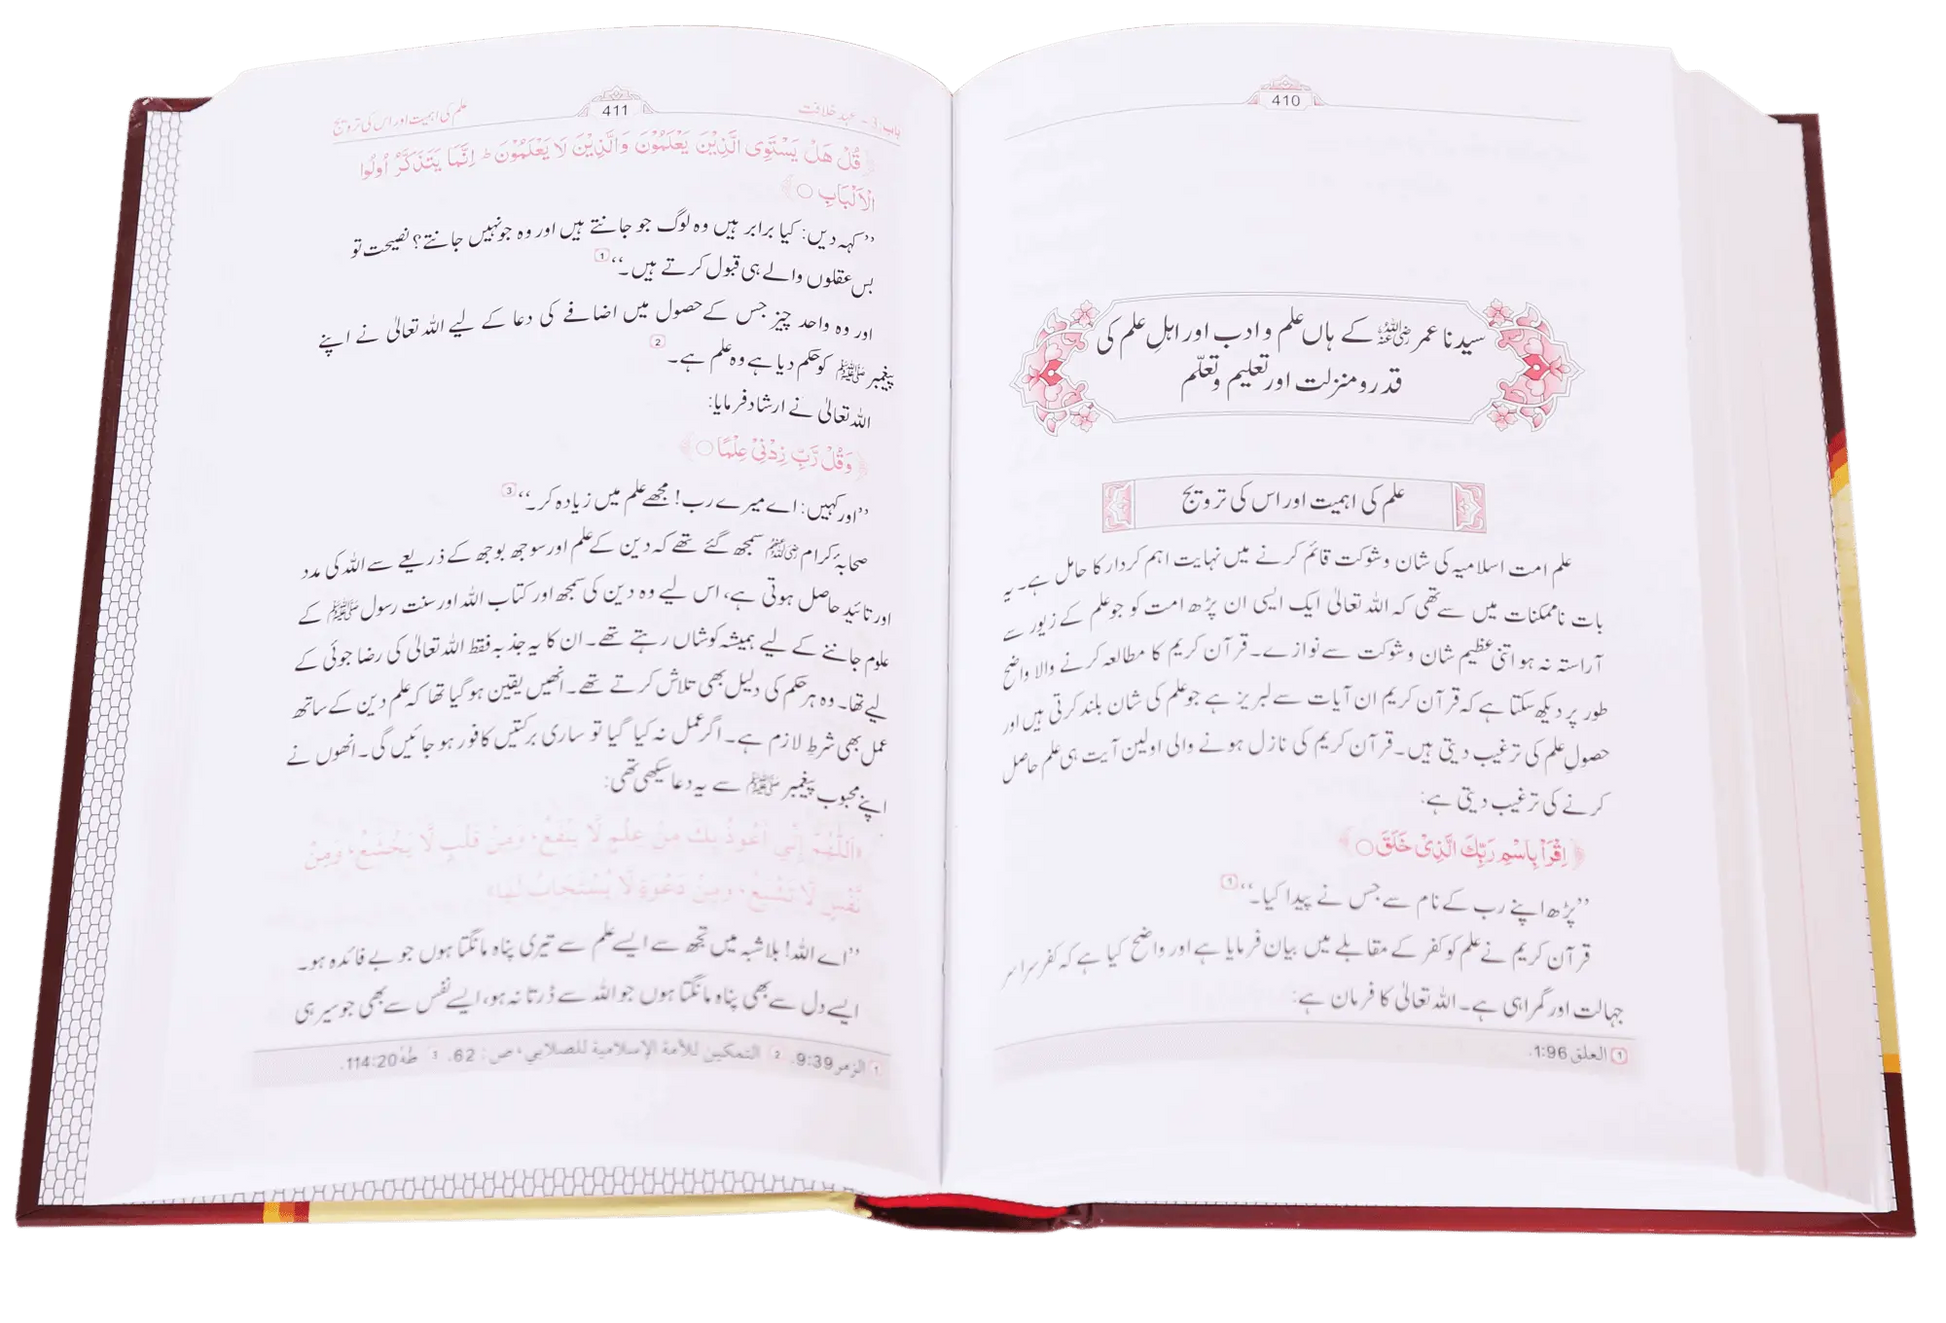 410
سیدنا عمر رضی اللہ عنہ کے ہاں علم و ادب اور اہلِ علم کی
قدر و منزلت اور تعلیم و تعلّم
علم کی اہمیت اور اس کی ترویج
علم امت اسلامیہ کی شان و شوکت قائم کرنے میں نہایت اہم کردار کا حامل ہے۔ یہ
بات ناممکنات میں سے تھی کہ اللہ تعالیٰ ایک ایسی ان پڑھ امت کو جو علم کے زیور سے
آراستہ نہ ہو اتنی عظیم شان و شوکت سے نوازے۔ قرآن کریم کا مطالعہ کرنے والا واضح
طور پر دیکھ سکتا ہے کہ قرآن کریم ان آیات سے لبریز ہے جو علم کی شان بلند کرتی ہیں اور
حصولِ علم کی ترغیب دیتی ہیں۔ قرآن کریم کی نازل ہونے والی اولین آیت ہی علم حاصل
کرنے کی ترغیب دیتی ہے:
﴿اِقْرَاْ بِاسْمِ رَبِّكَ الَّذِیْ خَلَقَ ○﴾
’’پڑھ اپنے رب کے نام سے جس نے پیدا کیا۔‘‘ 1
قرآن کریم نے علم کو کفر کے مقابلے میں بیان فرمایا ہے اور واضح کیا ہے کہ کفر سراسر
جہالت اور گمراہی ہے۔ اللہ تعالیٰ کا فرمان ہے:
1 العلق 1:96.
باب: 3 - عہد خلافت 411 علم کی اہمیت اور اس کی ترویج
﴿قُلْ هَلْ يَسْتَوِى الَّذِيْنَ يَعْلَمُوْنَ وَالَّذِيْنَ لَا يَعْلَمُوْنَ ط اِنَّمَا يَتَذَكَّرُ اُولُوا
الْاَلْبَابِ ○﴾
’’کہہ دیں: کیا برابر ہیں وہ لوگ جو جانتے ہیں اور وہ جو نہیں جانتے؟ نصیحت تو
بس عقلوں والے ہی قبول کرتے ہیں۔‘‘ 1
اور وہ واحد چیز جس کے حصول میں اضافے کی دعا کے لیے اللہ تعالیٰ نے اپنے
پیغمبر ﷺ کو حکم دیا ہے وہ علم ہے۔ 2
اللہ تعالیٰ نے ارشاد فرمایا:
﴿وَقُلْ رَّبِّ زِدْنِیْ عِلْمًا ○﴾
’’اور کہیں: اے میرے رب! مجھے علم میں زیادہ کر۔‘‘ 3
صحابۂ کرام رضی اللہ عنہم سمجھ گئے تھے کہ دین کے علم اور سوجھ بوجھ کے ذریعے سے اللہ کی مدد
اور تائید حاصل ہوتی ہے، اس لیے وہ دین کی سمجھ اور کتاب اللہ اور سنت رسول ﷺ کے
علوم جاننے کے لیے ہمیشہ کوشاں رہتے تھے۔ ان کا یہ جذبہ فقط اللہ تعالیٰ کی رضا جوئی کے
لیے تھا۔ وہ ہر حکم کی دلیل بھی تلاش کرتے تھے۔ انھیں یقین ہو گیا تھا کہ علم دین کے ساتھ
عمل بھی شرطِ لازم ہے۔ اگر عمل نہ کیا گیا تو ساری برکتیں کافور ہو جائیں گی۔ انھوں نے
اپنے محبوب پیغمبر ﷺ سے یہ دعا سیکھی تھی:
«اَللّٰهُمَّ إِنِّي أَعُوذُ بِكَ مِنْ عِلْمٍ لَّا يَنْفَعُ، وَمِنْ قَلْبٍ لَّا يَخْشَعُ، وَمِنْ
نَّفْسٍ لَّا تَشْبَعُ، وَمِنْ دَعْوَةٍ لَّا يُسْتَجَابُ لَهَا»
’’اے اللہ! بلاشبہ میں تجھ سے ایسے علم سے تیری پناہ مانگتا ہوں جو بے فائدہ ہو۔
ایسے دل سے بھی پناہ مانگتا ہوں جو اللہ سے ڈرتا نہ ہو، ایسے نفس سے بھی جو سیر ہی
1 الزمر 9:39. 2 التمكين للأمة الإسلامية للصلابي، ص: 62. 3 طٰهٰ 114:20.